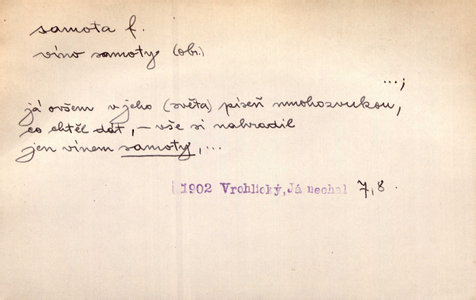 samota f.
víno samoty (obr.)
...;
já ovšem v jeho (světa) píseň mnohozvukou,
co chtěl dát, – vše si nahradil
jen vínem samoty,...
1902 Vrchlický, Já nechal 7, 8.